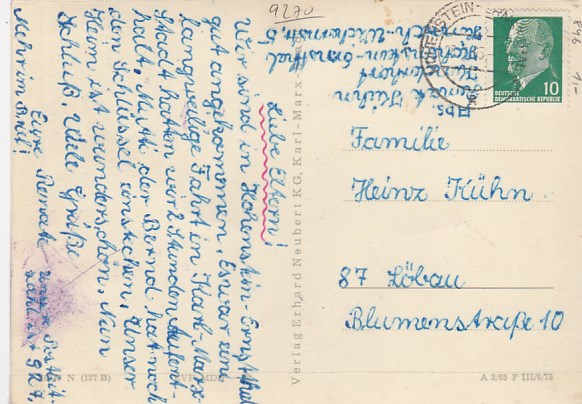 9270
Liebe Eltern!
Wir sind in Hohenstein-Ernstthal
gut angekommen. Es war eine
langweilige Fahrt in Karl-Marx-
Stadt hatten wir 2 Stunden Aufent-
halt. Mutti der Bernd hat noch
den Schlüssel einstecken. Unser
Heim ist wunderschön. Nun
Schluß. Viele Grüße
Eure Renate
Mehr im Brief!
unsere Postleit-
zahl ist 927.
Abs.
Renate Kühn
Hohenstein-Ernstthal
Familie
Heinz Kühn
87 Löbau
Blumenstraße 10
10
DEUTSCHE
DEMOKRATISCHE REPUBLIK
HOHENSTEIN-
Verlag Erhard Neubert KG, Karl-Marx-
N (127 B)
A 3/65 F III/6/75